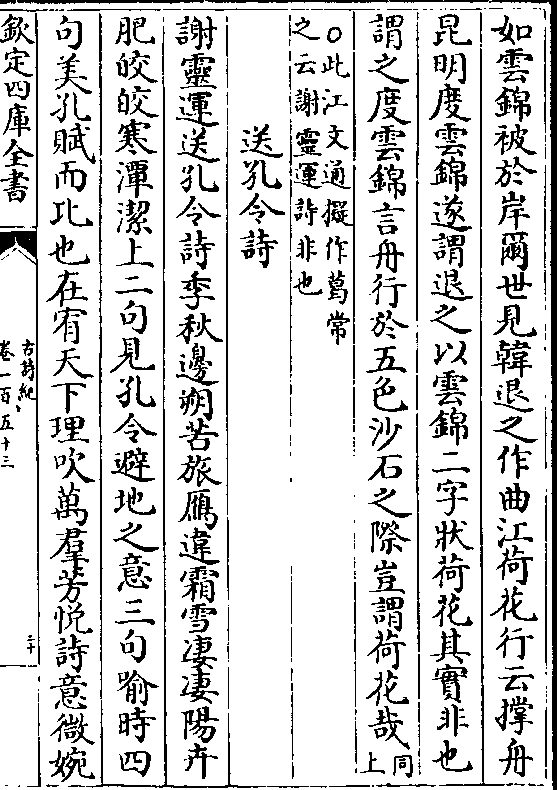 如雲錦被於岸爾世見韓退之作曲江荷花行云撑舟
昆明度雲錦遂謂退之以雲錦二字狀荷花其實非也
謂之度雲錦言舟行於五色沙石之際豈謂荷花哉同上
○此江文通擬作葛常
之云謝靈運詩非也
送孔令詩
謝靈運送孔令詩季秋邊朔苦旅鴈違霜雪凄凄陽卉
肥皎皎寒潭潔上二句見孔令避地之意三句喻時四
句美孔賦而比也在宥天下理吹萬羣芳悦詩意微婉
欽定四庫全書
古詩紀
卷一百五十三
二十